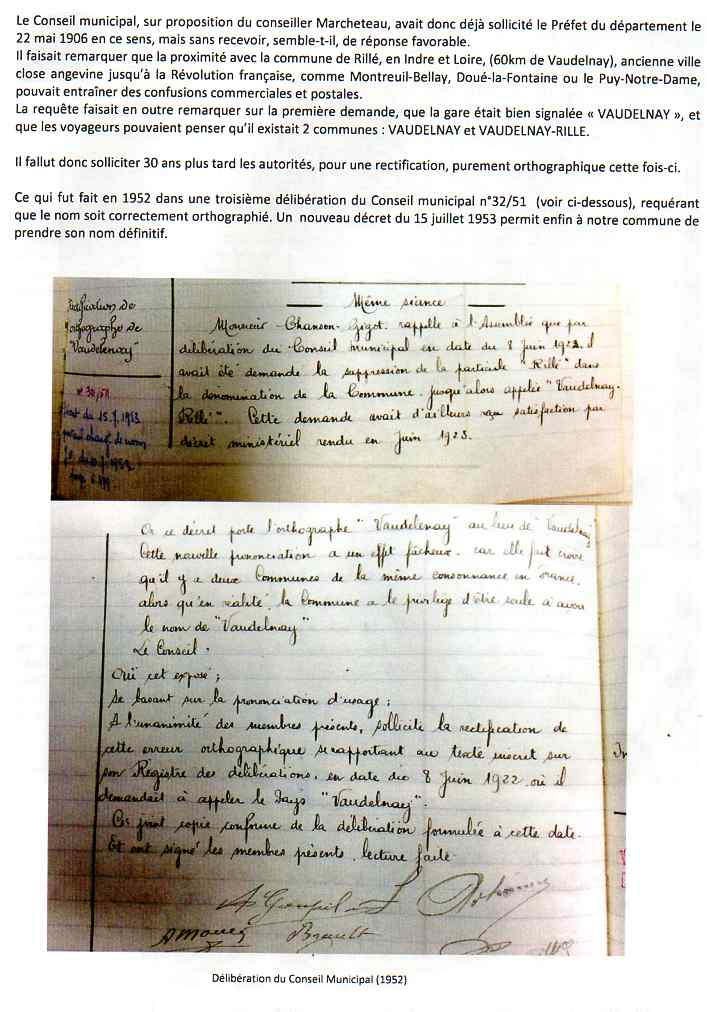 Le Conseil municipal, sur proposition du conseiller Marcheteau, avait donc déjà sollicité le Préfet du département le
22 mai 1906 en ce sens, mais sans recevoir, semble-t-il, de réponse favorable.
Il faisait remarquer que la proximité avec la commune de Rillé, en Indre et Loire, (60km de Vaudelnay), ancienne ville
close angevine jusqu'à la Révolution française, comme Montreuil-Bellay, Doué-la-Fontaine ou le Puy-Notre-Dame,
pouvait entraîner des confusions commerciales et postales.
La requête faisait en outre remarquer sur la première demande, que la gare était bien signalée « VAUDELNAY », et
que les voyageurs pouvaient penser qu'il existait 2 communes : VAUDELNAY et VAUDELNAY-RILLE.
Il fallut donc solliciter 30 ans plus tard les autorités, pour une rectification, purement orthographique cette fois-ci.
Ce qui fut fait en 1952 dans une troisième délibération du Conseil municipal n°32/51 (voir ci-dessous), requérant
que le nom soit correctement orthographié. Un nouveau décret du 15 juillet 1953 permit enfin à notre commune de
prendre son nom définitif.
Rectification de
l'orthographe de
"Vaudelenay"
du 15.7.1953
Même séance
Monsieur Chanson-Gigot rappelle à l'Assemblée que par
délibération du Conseil municipal en date du 8 Juin 1922 il
avait été demandé la suppression de la particule "Rillé" dans
la dénomination de la Commune jusqu'alors appelée "Vaudelnay-
Rillé". Cette demande avait d'ailleurs reçu satisfaction par
décret ministériel rendu en Juin 1923.
Or ce décret porte l'orthographe "Vaudelenay" au lieu de "Vaudelnay"
Cette nouvelle prononciation a un effet fâcheux, car elle fait croire
qu'il y a deux Communes de la même consonnance en France,
alors qu'en réalité la Commune a le privilège d'être seule à avoir
le nom de "Vaudelnay"
Le Conseil.
Ouï cet exposé ;
Se basant sur la prononciation d'usage ;
A l'unanimité des membres présents, sollicite la rectification de
cette erreur orthographique se rapportant au texte inscrit sur
son Registre des délibérations, en date du 8 Juin 1922 où il
demandait à appeler le Pays "Vaudelnay".
Ci joint copie conforme de la délibération formulée à cette date.
Et ont signé les membres présents, lecture faite
Délibération du Conseil Municipal (1952)